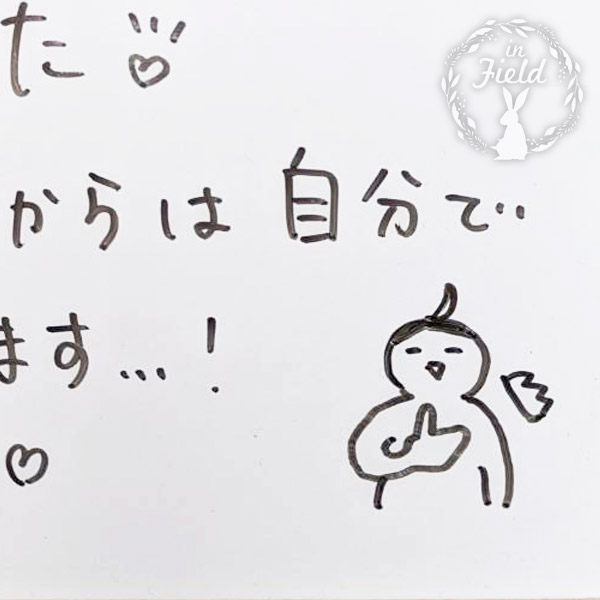 た♡
からは自分で
ます…!
♡
in Field